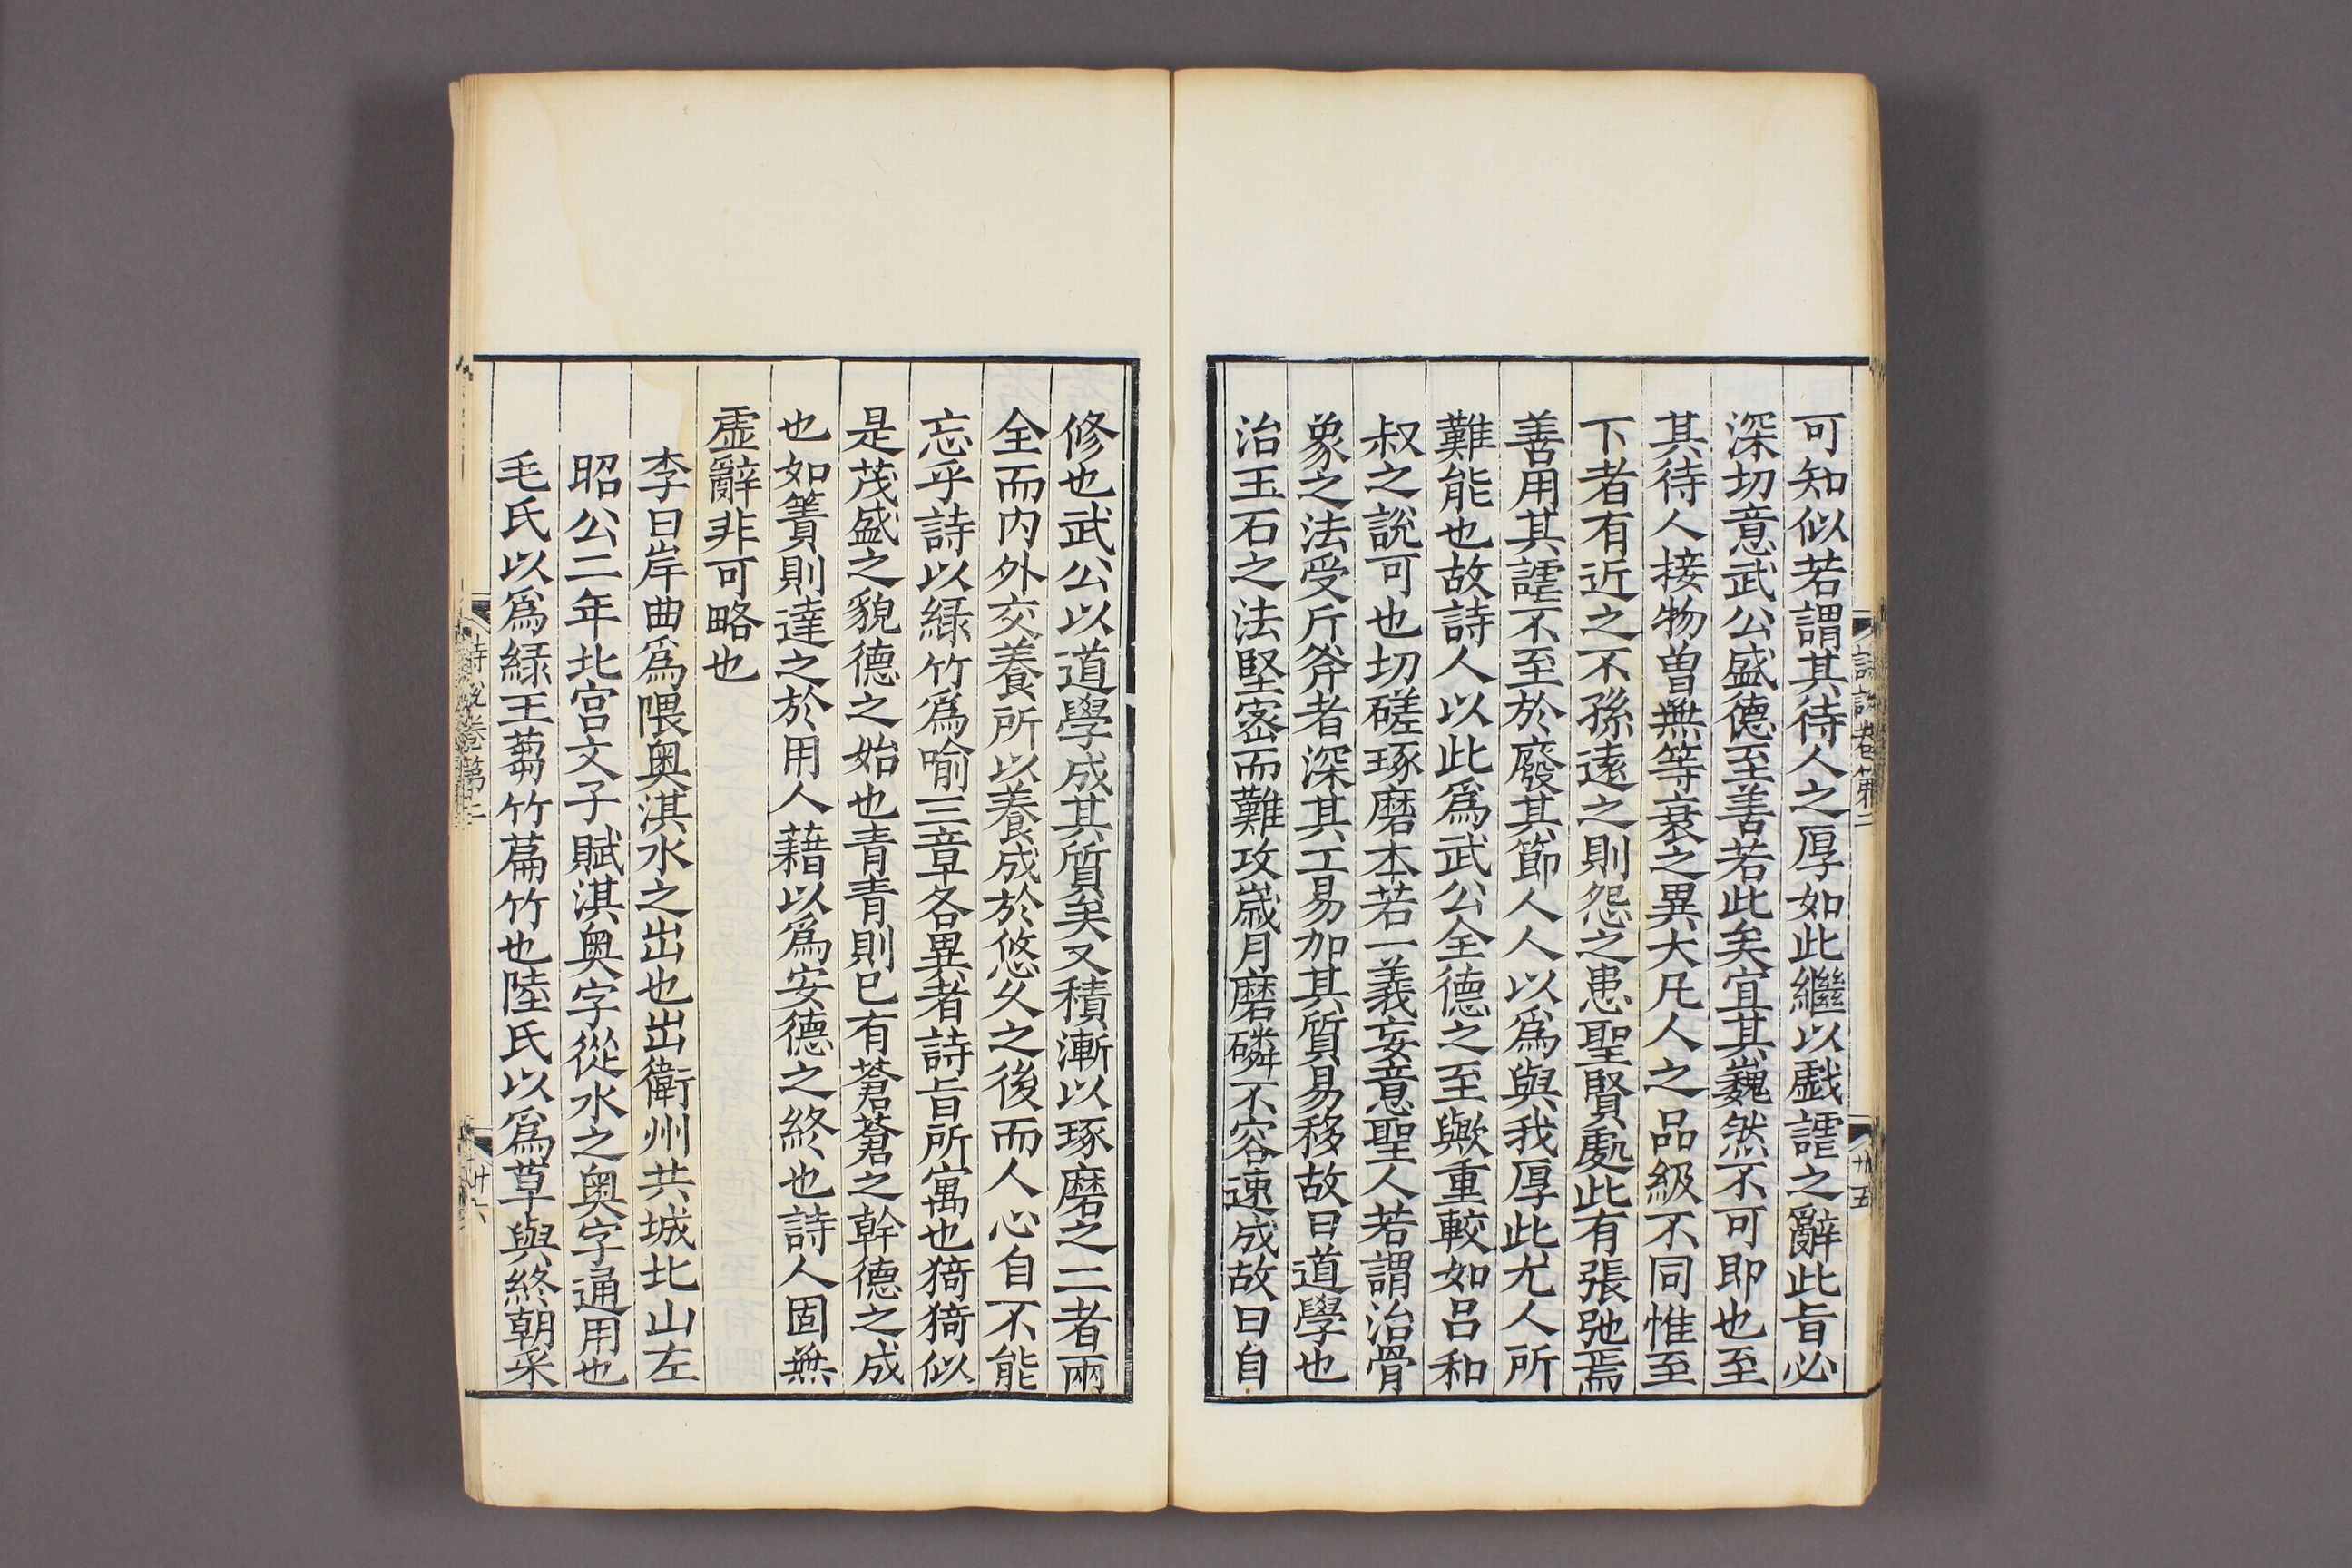 可知似若謂其待人之厚如此繼以戯謔之辭此旨必
深切意武公盛德至善若此矣宜其巍然不可即也至
其待人接物曽無等衰之異大凡人之品級不同惟至
下者有近之不孫遠之則怨之患聖賢處此有張弛焉
善用其謔不至於廢其節人人以為與我厚此尤人所
難能也故詩人以此為武公全德之至歟重較如呂和
叔之說可也切磋琢磨本若一義妄意聖人若謂治骨
象之法受斤斧者深其工易加其質易移故曰道學也
治玉石之法堅宻而難攻嵗月磨磷不容速成故曰自
詩說卷第二
廿五
修也武公以道學成其質矣又積漸以琢磨之二者兩
全而内外交養所以養成於悠久之後而人心自不能
忘乎詩以緑竹為喻三章各異者詩旨所寓也猗猗似
是茂盛之貌德之始也青青則已有蒼蒼之幹德之成
也如簀則達之於用人藉以為安德之終也詩人固無
虛辭非可略也
李曰岸曲為隈奥淇水之出也出衛州共城北山左
昭公二年北宮文子賦淇奥字從水之奥字通用也
毛氏以為緑王芻竹萹竹也陸氏以為草與終朝采
詩說卷第二
廿六